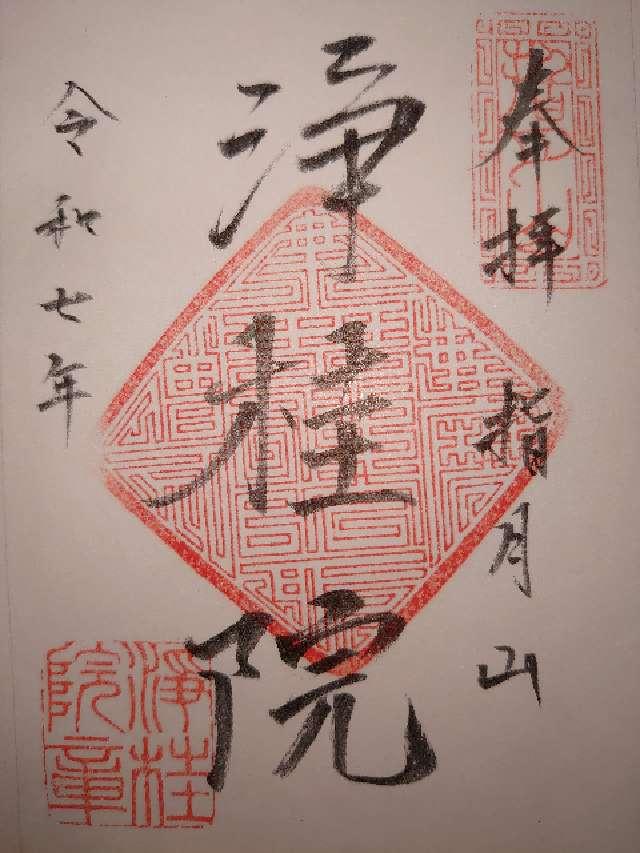 奉拝
指月山
浄桂院
令和七年
淨桂
院章